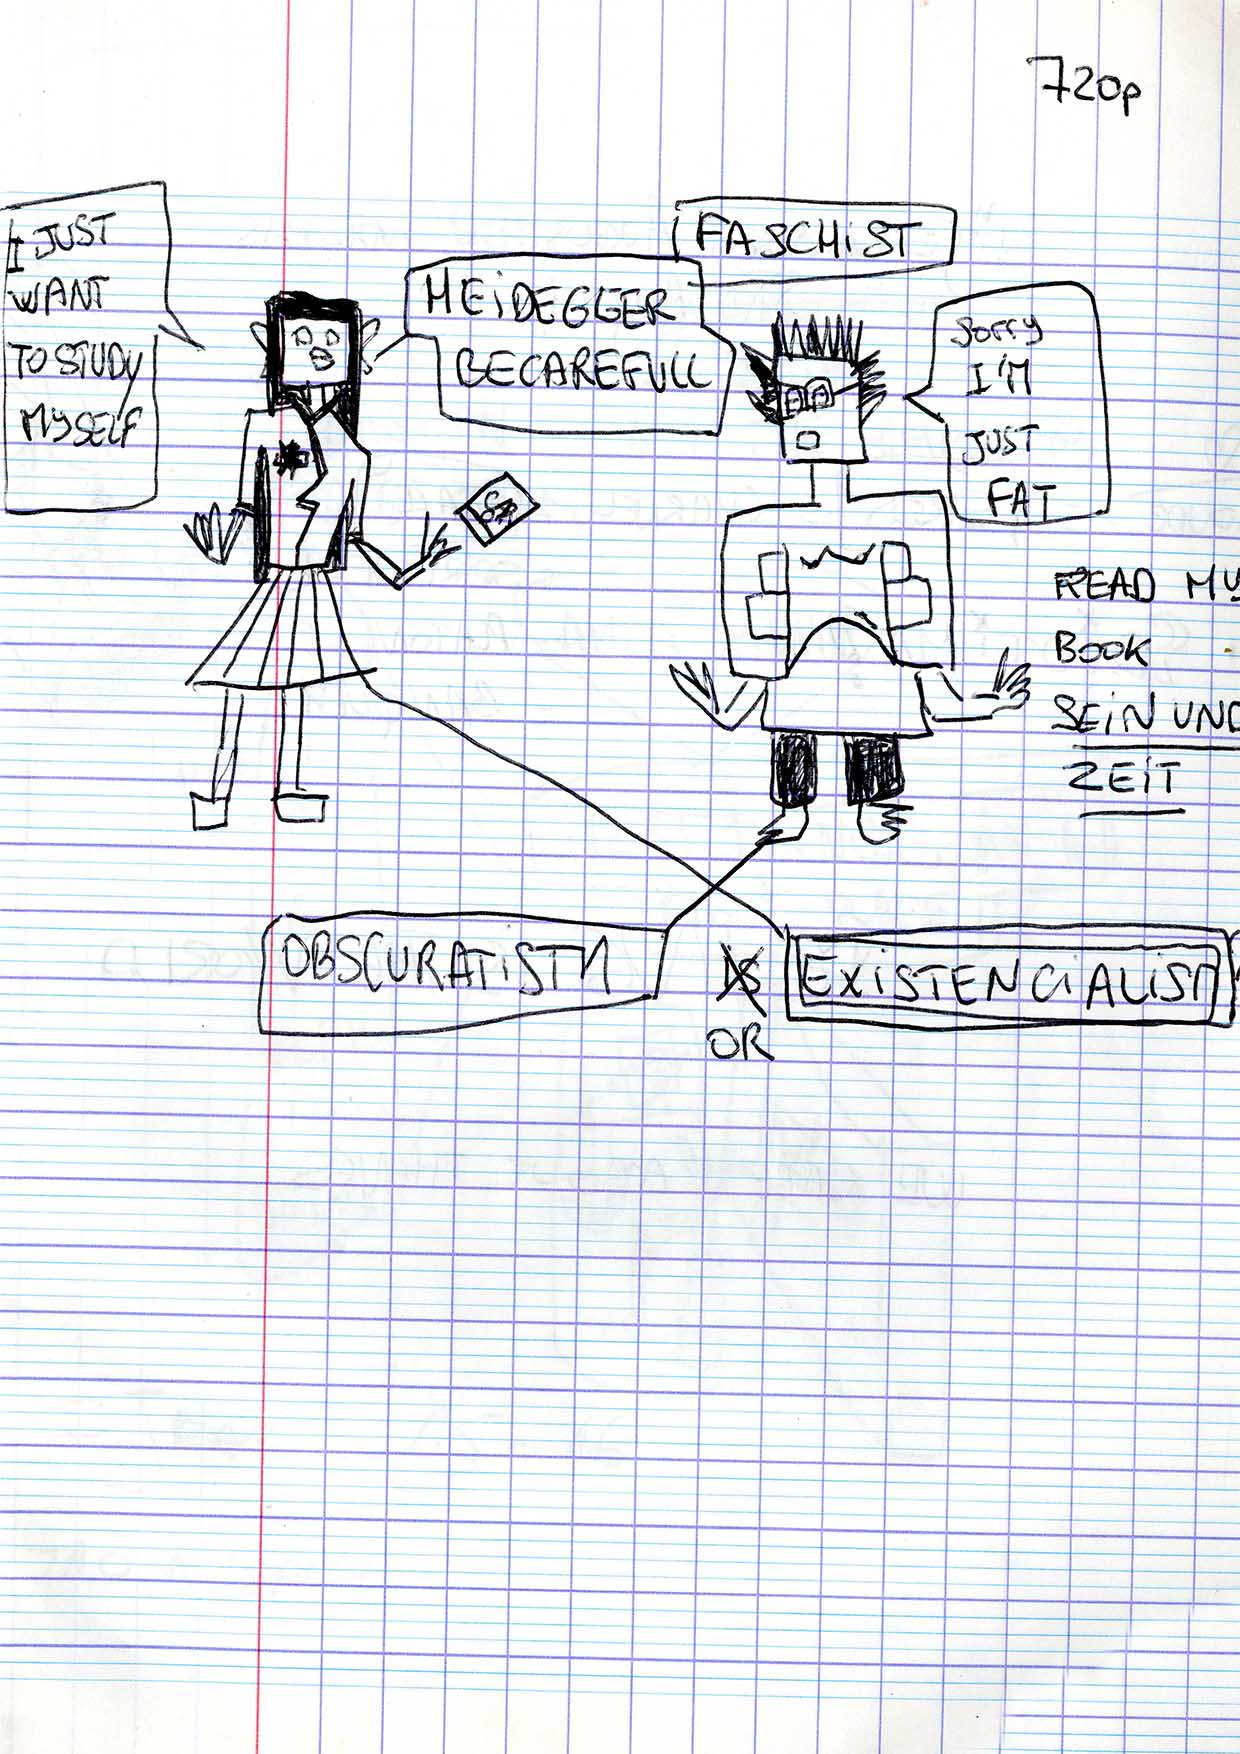 720p
I JUST
WANT
TO STUDY
MYSELF
FASCHIST
HEIDEGGER
BECAREFULL
SORRY
I'M
JUST
FAT
READ MY
BOOK
SEIN UND
ZEIT
OBSCURATISM
OR
EXISTENCIALISM